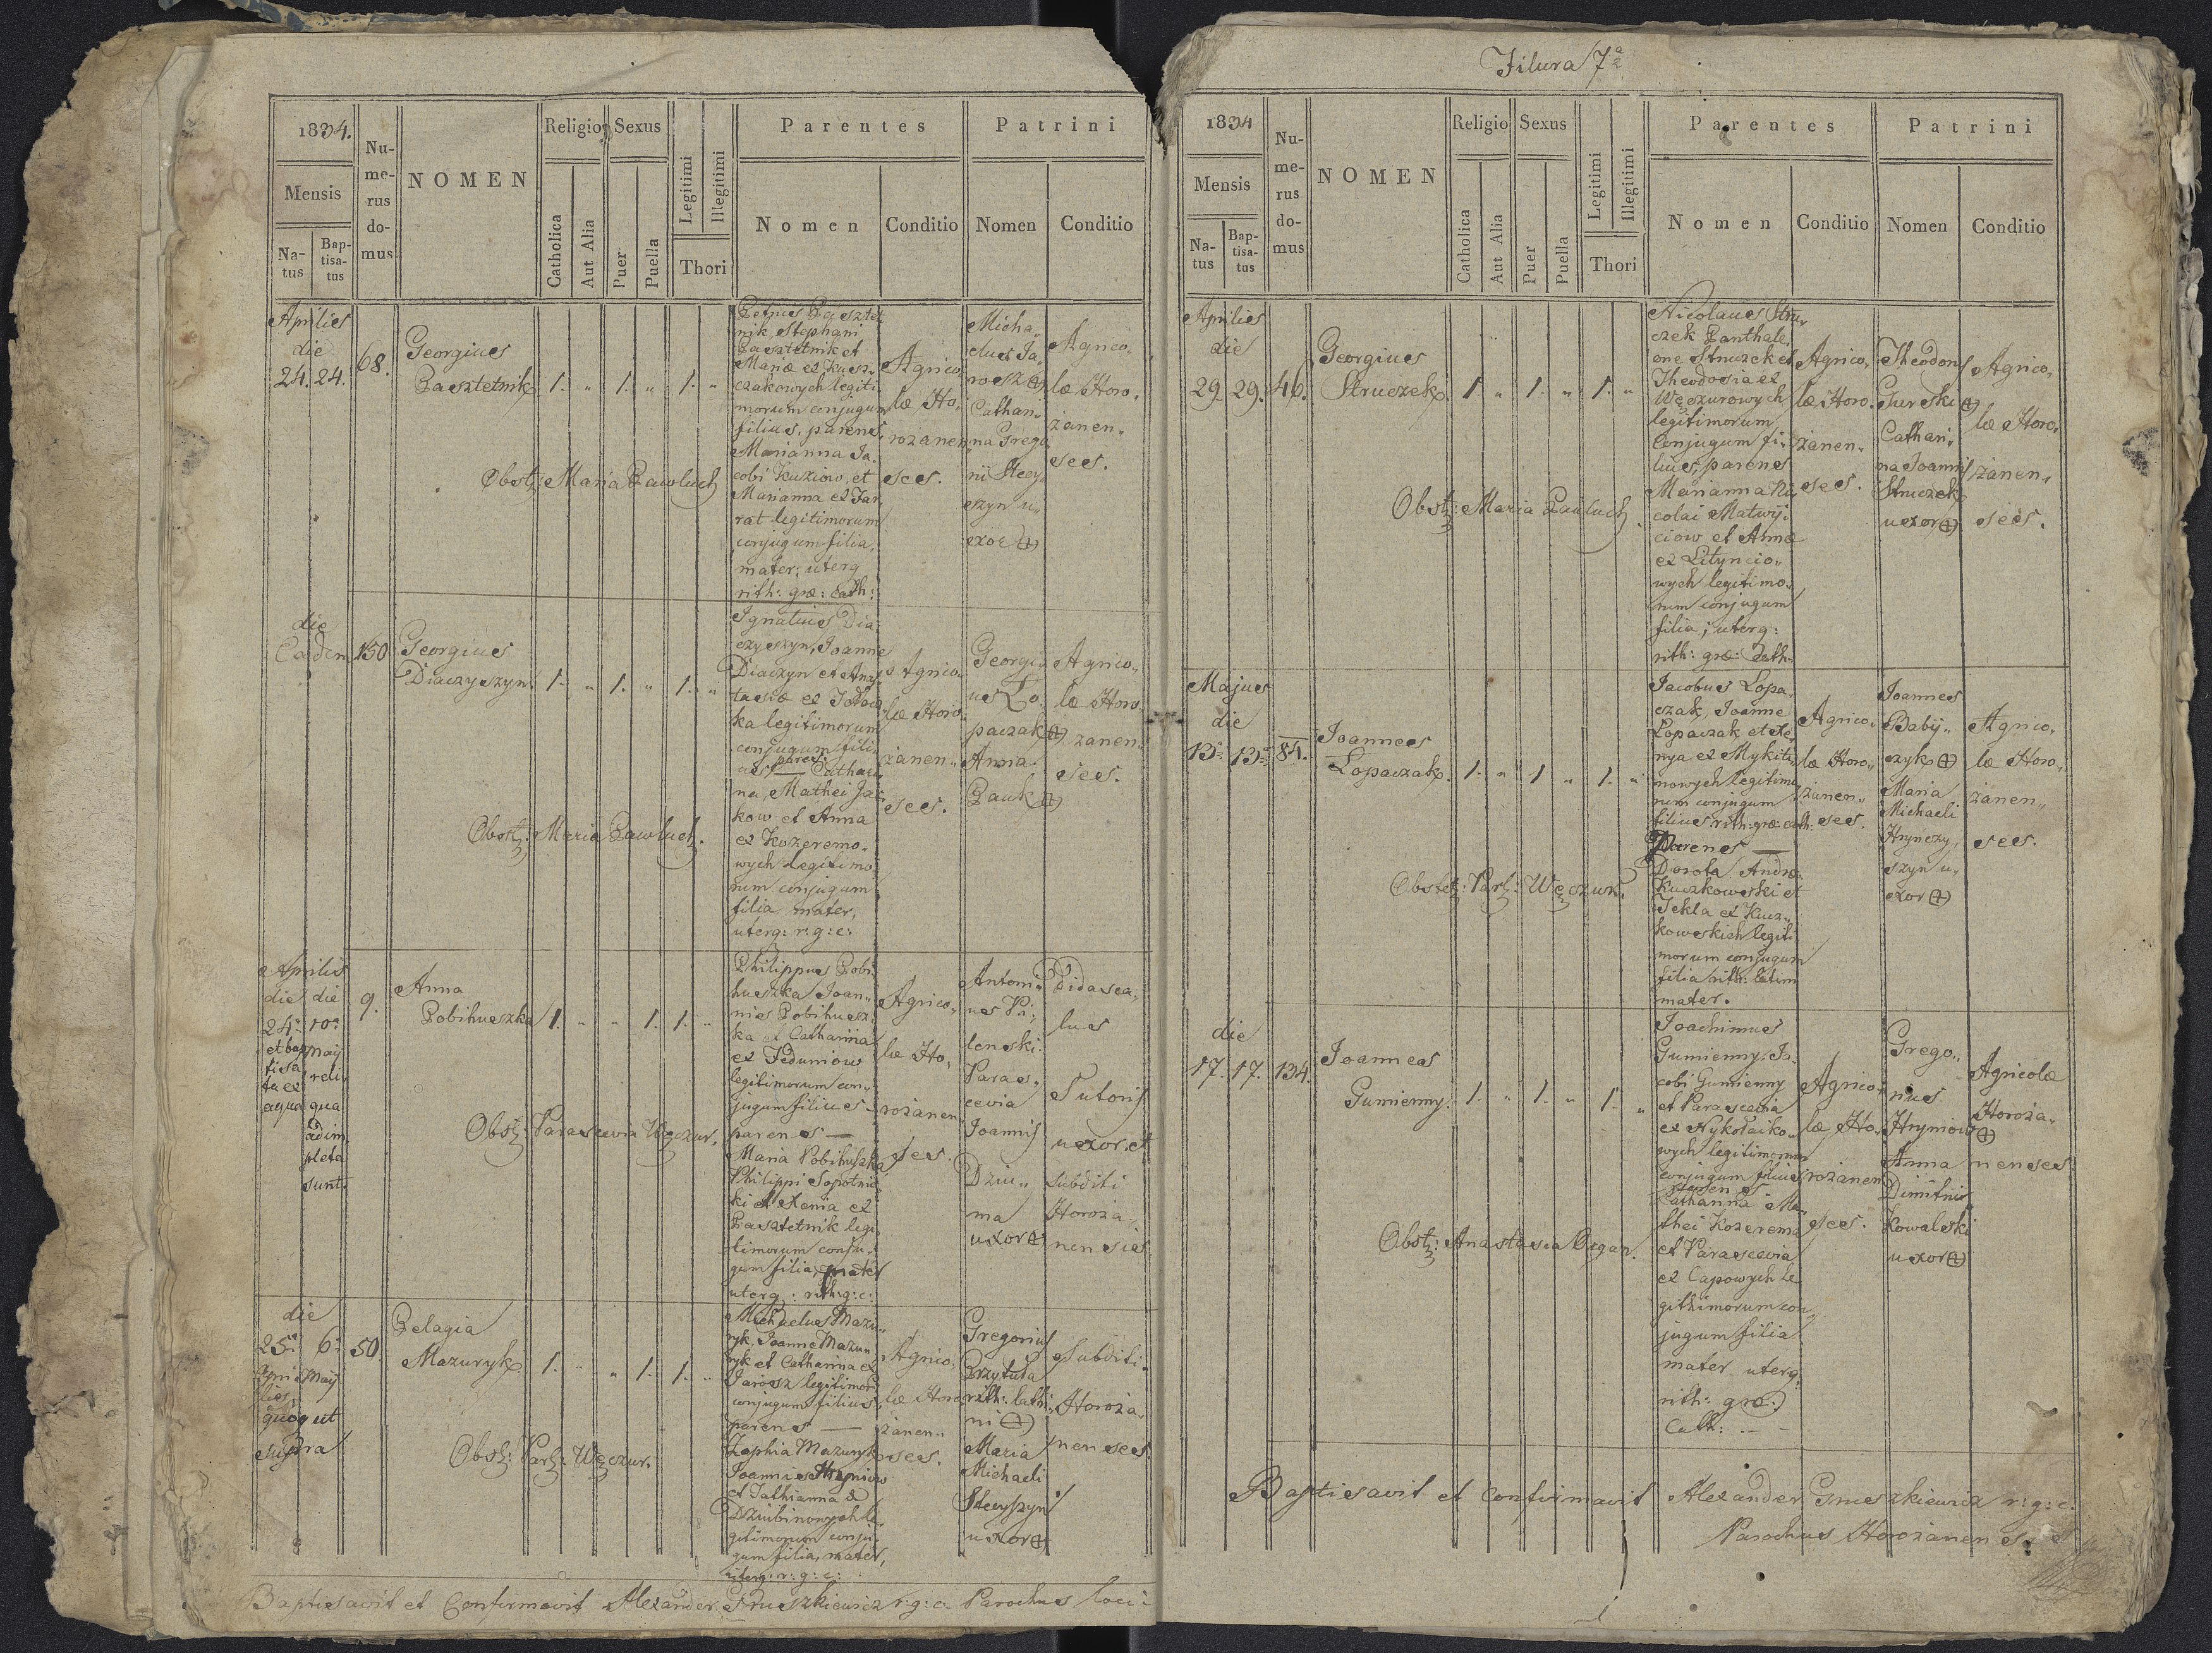 1834.
Mensis
Na-
tus
Bap-
tisa-
tus
Nu-
me-
rus
do-
mus
NOMEN
Religio
Catholica
Aut Alia
Sexus
Puer
Puella
Legitimi
Illegitimi
Thori
Parentes
Nomen
Conditio
Patrini
Nomen
Conditio
Aprilies
die
24. 24.
68.
Georgius
Pasztetnik
1. „ 1. „ 1. „
Obst: Maria Pawluch
Petrus Pasztet
nik, Stephani
Pasztetnik et
czakowych legiti
morum conjugum
filius, parens
Marianna Ja,
cobi Kuziow, et
Marianna ex Jar
rat legitimorum
conjugum filia,
mater; uterq
rith: græ: Cath:
Agrico
læ Ho,
rożanen
ses.
Micha„
elus Ja,
rosz
Cathari„
na Grego
rii Stecy
szyn u„
xor
Agrico„
læ Horo„
żanen„
ses.
die
Eadem
150
Georgius
Diaczyszyn.
1. „ 1. „ 1. „
Obst: Maria Pawluch.
Ignatius Dia
czyszyn, Joanne
Diaczyn et Anas
tasiæ ex
ka legitimorum
conjugum fili
us parens
— Cathari
na, Mathei Jac
kow et Anna
ex Kozeremo„
wych legitimo
rum conjugum
filia mater,
uterq: r: g: c:
Agrico„
læ Horo„
żanen„
ses.
Georgi„
us Lo„
paczak
Anna
Pauk
Agrico„
læ Horo
żanen„
ses.
Aprilis
die die
24ª 10ª
et bap Maij
tisa reli
ta ex
aqua qua
adim
pleta
sunt.
9.
Anna
Pobihuszka
1. „ „ 1. 1. „
Obst: Parascevia Węczur.
Philippus Pobi
huszka Joan„
nis Pobihusz„
ka et Catharina
ex Feduniow
legitimorum con„
jugum filius
parens —
Maria Pobihuszka
Philippi Sopotnic
ki et Xenia ex
Pasztetnik legi„
timorum conju„
gum filia, mater
uterq: rith: g: c:
Agrico„
læ Ho„
rożanen
ses.
Antoni„
us Wi„
lenski.
Paras„
cevia
Joannis
Dziu„
ma
uxor
Didasca„
lus
Sutoris
uxor et
subditi
Horoża„
nenses
die
25ª 6ª
Apri Maij
lies
quoq ut
supra
50.
Pelagia
Mazuryk.
1. „ „ 1. 1. „
Obst: Par: Węczur.
Michaelus Mazu„
ryk, Joanne Mazu„
ryk et Catharina ex
Jarosz legitimor
conjugum filius
parens —
Zophia Mazuryk
Joannis Hryniow
et Tathianna &
Dziubinowych le
gitimorum conju„
gum filia, mater,
uterq: r: g: c:
Agrico„
læ Horo
żanen„
ses.
Gregorius
Przytuła
rith: lati„
ni
Maria
Michaeli
Stecyszyn
uxor
Subditi„
Horoża„
nenses.
Baptisavit et Confirmavit Alexander Gruszkiewicz r: g: c: Parochus loci:
Filura 7ª
1834
Mensis
Na-
tus
Bap-
tisa-
tus
Nu-
me-
rus
do-
mus
NOMEN
Religio
Catholica
Aut Alia
Sexus
Puer
Puella
Legitimi
Illegitimi
Thori
Parentes
Nomen
Conditio
Patrini
Nomen
Conditio
Aprilies
die
29. 29.
46.
Georgius
Struczek.
1 „ 1. „ 1. „
Obst: Maria Pauluch.
Nicolaus Stru„
czek Panthale„
one Struczek et
Theodosia ex
Węczurowych
legitimorum
conjugum fi„
lius, parens
Marianna Ni„
colai Matwij„
ciow et Anna
ex Lityncio„
wych legitimo„
rum conjugum
filia; uterq:
rith: græ: Cath:
Agrico„
læ Horo.
żanen„
ses.
Theodori
Gurski
Cathari„
na Joannis
Struczek
uxor
Agrico„
læ Horo„
żanen„
ses.
Majus
die
13ª 13ª
84.
Joannes
Lopaczak.
1. „ 1 „ 1. „
Obstet: Par: Węczur.
Jacobus Lopa„
czak, Joanne
Lopaczak et Xe„
nya ex Mykiti„
nowych legitimo
rum conjugum
filius rith: græ: cath:
Parens —
Dorota Andræ
Kuczkowski et
Tekla ex Kucz„
kowskich legiti
morum conjugum
filia rith: latini
mater.
Agrico„
læ Horo„
żanen„
ses.
Joannes
Babij„
czyk
Maria
Michaeli
Hrynczy„
szyn u„
xor
Agrico„
læ Horo„
żanen„
ses.
die
17. 17.
134.
Joannes
Gumienny.
1. „ 1. „ 1. „
Obst: Anastasia Organ.
Joachimus
Gumienny, Ja„
cobi Gumienny
et Parascevia
ex Nykołaiko„
wych legitimorum
conjugum filius
parens
Catharina Ma„
thei Kozerema
et Parascevia
ex Capowych le
githimorum con„
jugum filia
mater uterq:
rith: græ:
Cath: —
Agrico„
læ Ho„
rożanen
ses.
Grego„
rius
Hryniow
Anna
Dimitrii
Kowalski
uxor
Agricolæ
Horoża„
nenses.
Baptisavit et Confirmavit Alexander Gruszkiewicz r: g: c:
Parochus Horożanensis